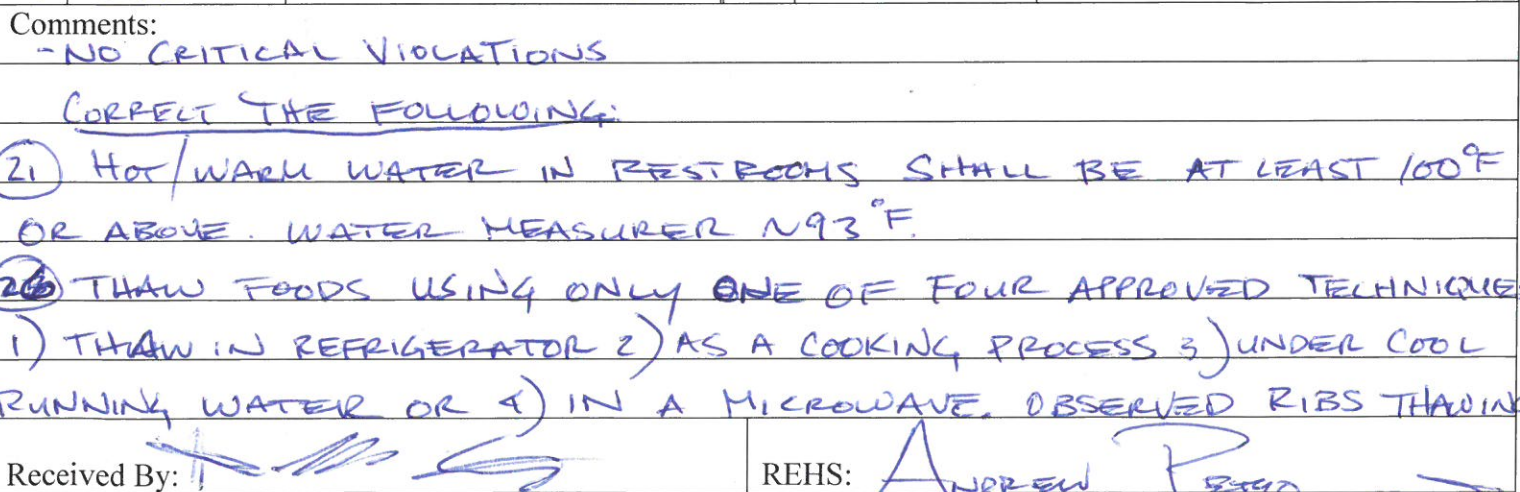 Comments:
- NO CRITICAL VIOLATIONS
CORRECT THE FOLLOWING:
21 HOT/WARM WATER IN RESTROOMS SHALL BE AT LEAST 100°F
OR ABOVE. WATER MEASURER ~93°F.
26 THAW FOODS USING ONLY ONE OF FOUR APPROVED TECHNIQUE
1) THAW IN REFRIGERATOR 2) AS A COOKING PROCESS 3) UNDER COOL
RUNNING WATER OR 4) IN A MICROWAVE. OBSERVED RIBS THAWING
Received By: REHS: ANDREW